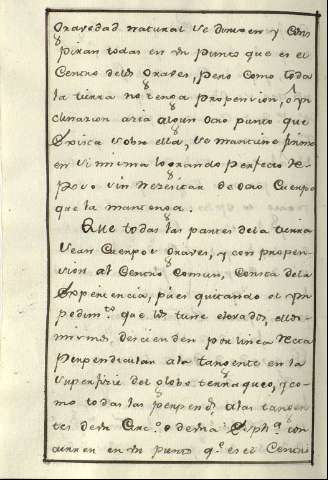 Gravedad natural se dirigen y Cons
piran todas en un punto que es el
Centro de los Graves, pero como toda
la tierra no tenga propencion, o yn
clinacion acia algun otro punto que
exista sobre ella, se mantiene firme
en si misma logrando perfecto Re
poso sin necesitar de otro Cuerpo
que la mantenga.
Que todas las partes de la tierra
sean Cuerpos Graves, y con propen
sion al Centro Comun, consta de la
Experiencia, pues quitando el ym
pedim.to que los tiene elevados, ellos
mismos descienden por linea Recta
Perpendicular a la tangente en la
superficie del globo terraqueo, y co
mo todas las perpend.s a las tangen
tes de un Circ.o o de una Esph.a con
curren en un punto q.e es el Centro